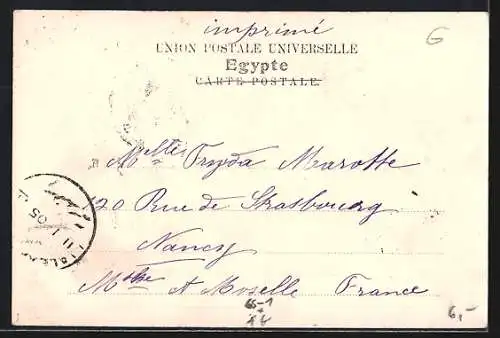 imprimé
G
UNION POSTALE UNIVERSELLE
Egypte
CARTE POSTALE
Melle Fryda Marotte
20 Rue de Strasbourg
Nancy
Mthe et Moselle France
05
6,-